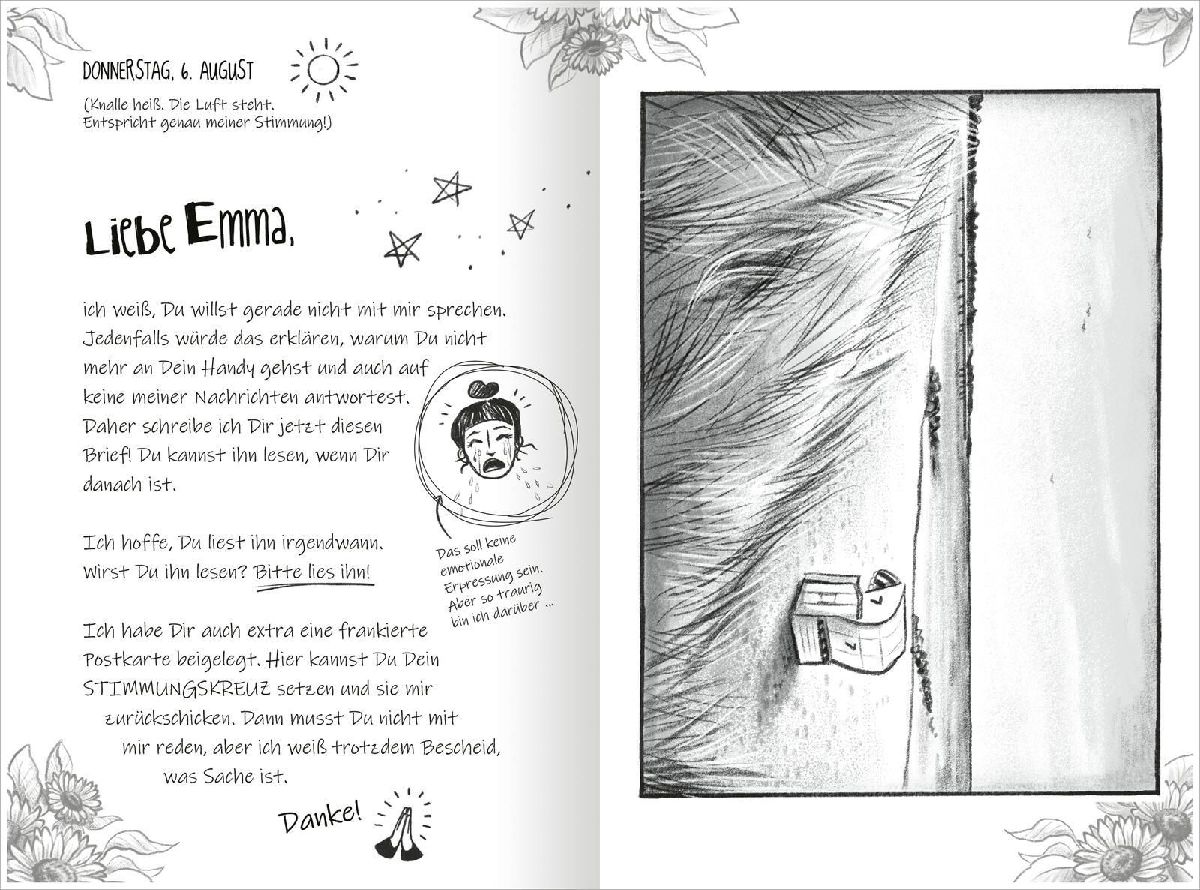 DONNERSTAG, 6. AUGUST
(Knalle heiß. Die Luft steht.
Entspricht genau meiner Stimmung!)
Liebe Emma,
ich weiß, Du willst gerade nicht mit mir sprechen.
Jedenfalls würde das erklären, warum Du nicht
mehr an Dein Handy gehst und auch auf
keine meiner Nachrichten antwortest.
Daher schreibe ich Dir jetzt diesen
Brief! Du kannst ihn lesen, wenn Dir
danach ist.
Das soll keine
emotionale
Erpressung sein.
Aber so traurig
bin ich darüber ...
Ich hoffe, Du liest ihn irgendwann.
Wirst Du ihn lesen? Bitte lies ihn!
Ich habe Dir auch extra eine frankierte
Postkarte beigelegt. Hier kannst Du Dein
STIMMUNGSKREUZ setzen und sie mir
zurückschicken. Dann musst Du nicht mit
mir reden, aber ich weiß trotzdem Bescheid,
was Sache ist.
Danke!